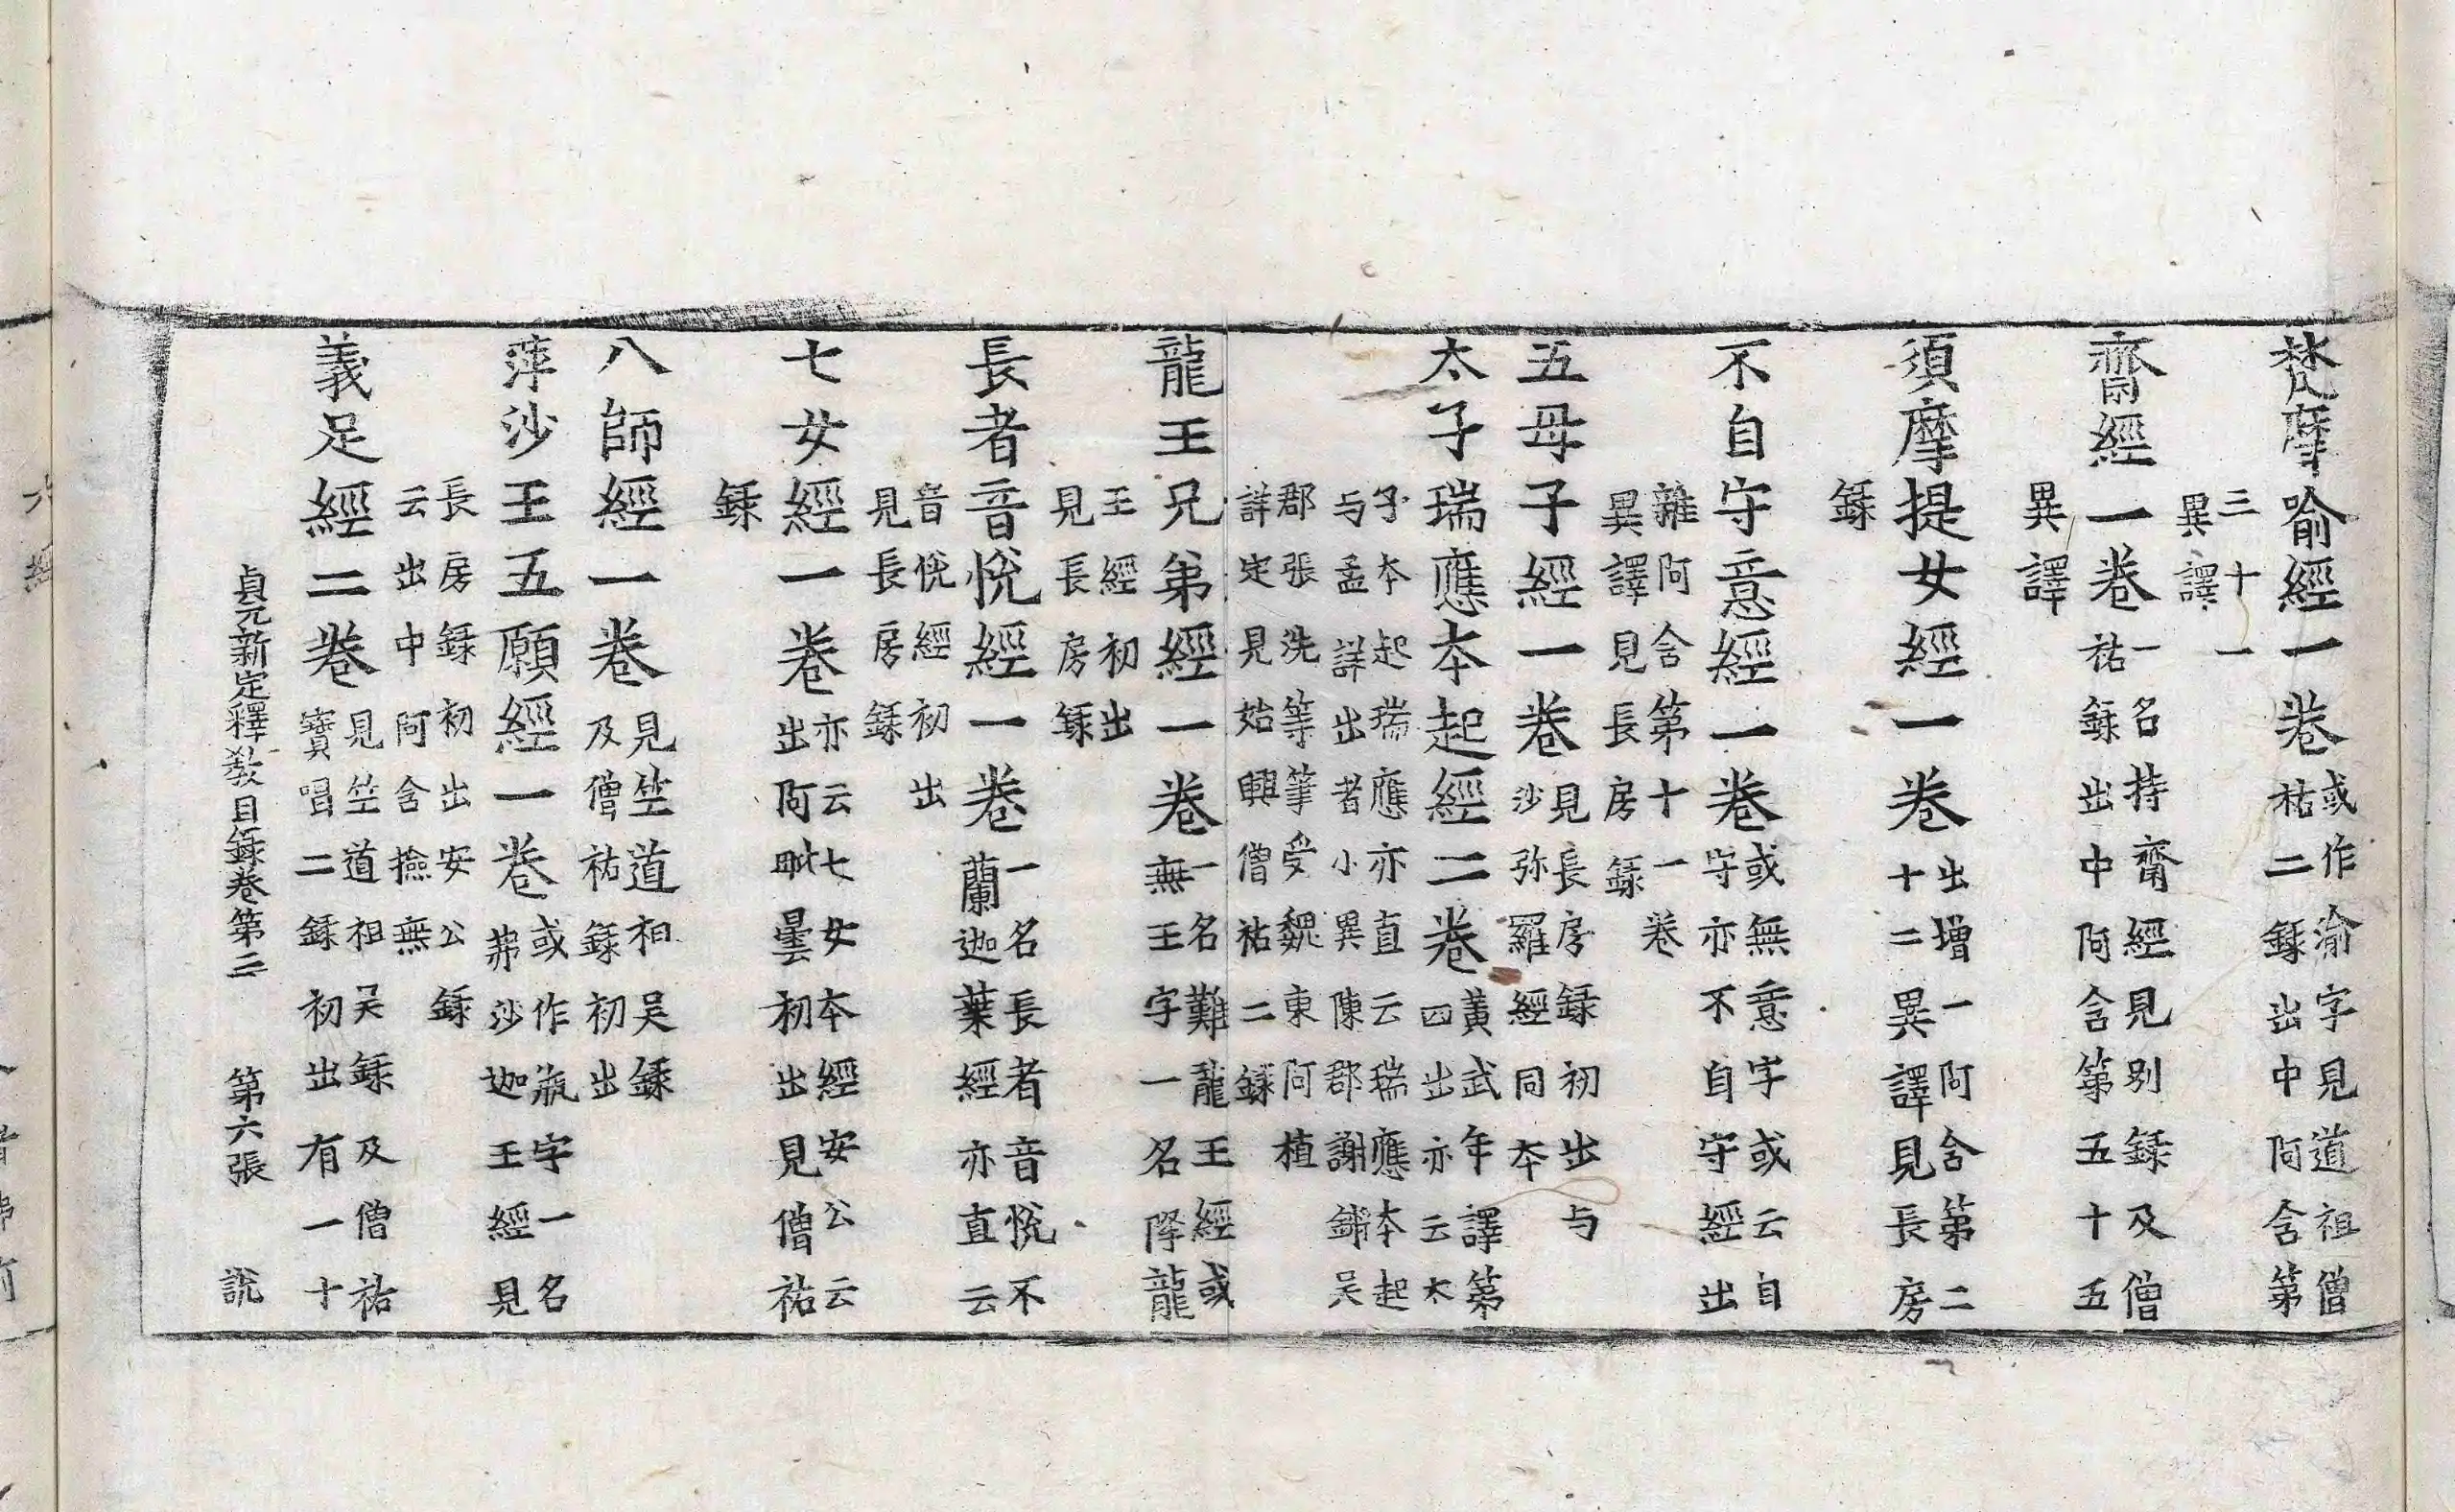 梵摩喻經一卷或作渝字見道祖僧祐二錄出中阿含第
三十一異譯
齋經一卷一名持齋經見別錄及僧祐錄出中阿含第五十五
異譯
須摩提女經一卷出增一阿含第二十二異譯見長房
錄
不自守意經一卷或無意字或云自守亦不自守經出
雜阿含第十一卷異譯見長房錄
五母子經一卷見長房錄初出与沙弥羅經同本
太子瑞應本起經二卷黃武年譯第四出亦云太
子本起瑞應亦直云瑞應本起与孟詳出者小異陳郡謝鏘吳
郡張洗等筆受魏東阿植詳定見始興僧祐二錄
龍王兄弟經一卷一名難龍王經或無王字一名降龍
王經初出見長房錄
長者音悅經一卷一名長者音悅不蘭迦葉經亦直云
音悅經初出見長房錄
七女經一卷亦云七女本經安公云出阿毗曇初出見僧祐
錄
八師經一卷見竺道祖吳錄及僧祐錄初出
蓱沙王五願經一卷或作瓶字一名弗沙迦王經見
長房錄初出安公錄云出中阿含撿無
義足經二卷見竺道祖吳錄及僧祐寶唱二錄初出有一十
貞元新定釋教目錄卷第二 第六張 說